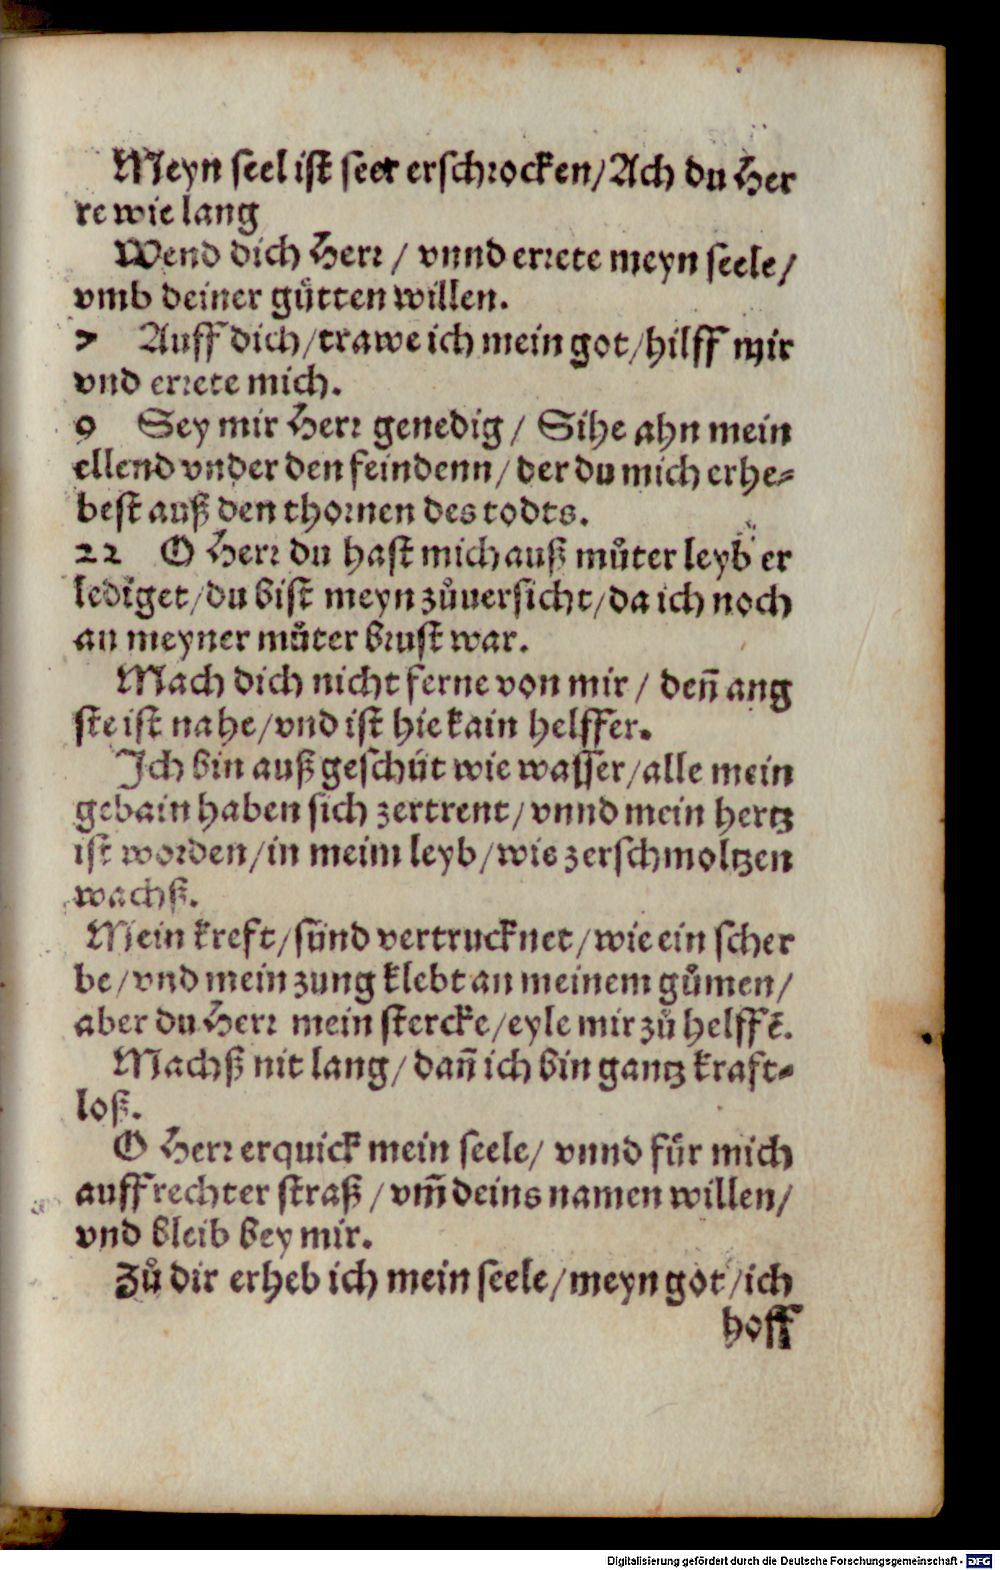 Meyn seel ist seer erschrocken/Ach du Her
re wie lang
Wend dich Herr / vnnd errete meyn seele/
vmb deiner guͤtten willen.
7 Auff dich/trawe ich mein got/hilff mir
vnd errete mich.
9 Sey mir Herr genedig / Sihe ahn mein
ellend vnder den feindenn/der du mich erhe-
best auß den thornen des todts.
22 O Herr du hast mich auß muͦter leyb er
lediget/du bist meyn zuͦuersicht/da ich noch
an meyner muͦter brust war.
Mach dich nicht ferne von mir / deñ ang
ste ist nahe/vnd ist hie kain helffer.
Ich bin auß geschüt wie wasser/alle mein
gebain haben sich zertrent/vnnd mein hertz
ist worden/in meim leyb/wie zerschmoltzen
wachß.
Mein kreft/sünd vertrucknet/wie ein scher
be/vnd mein zung klebt an meinem guͦmen/
aber du Herr mein stercke/eyle mir zuͦ helffē.
Machß nit lang/dañ ich bin gantz kraft-
loß.
O Herr erquick mein seele/ vnnd fuͤr mich
auff rechter straß /vm̃ deins namen willen/
vnd bleib bey mir.
Zuͦ dir erheb ich mein seele/meyn got/ich
hoff
Digitalisierung gefördert durch die Deutsche Forschungsgemeinschaft - DFG